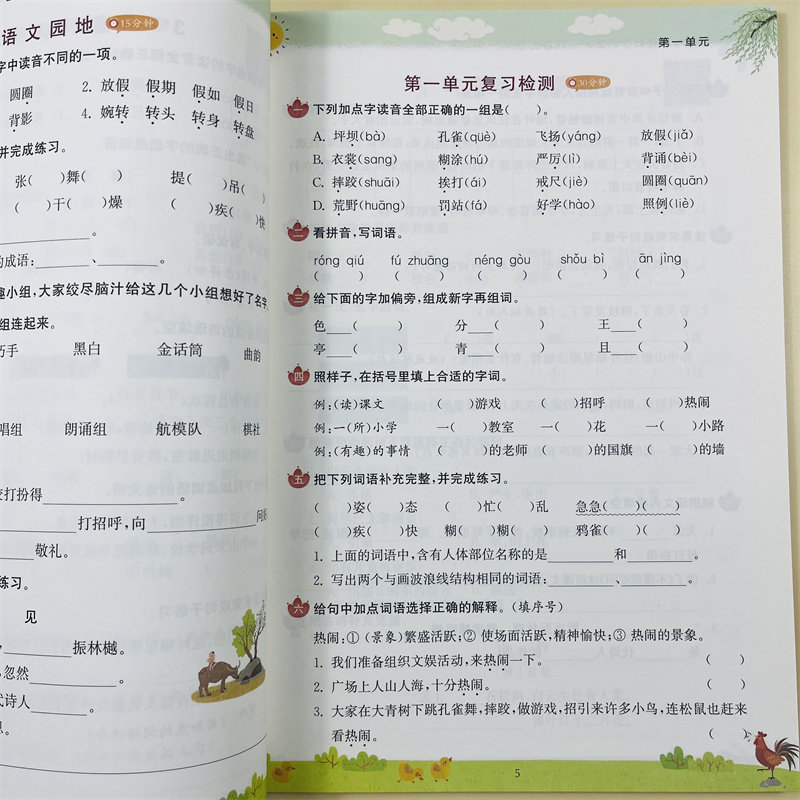 语文园地 15分钟
字中读音不同的一项。
圆圈 2. 放假 假期 假如 假日
背影 4. 婉转 转头 转身 转盘
并完成练习。
张( )舞( ) 提( )吊( )
( )干( )燥 ( )疾( )快
。
的成语: 、 。
趣小组,大家绞尽脑汁给这几个小组想好了名字,
组连起来。
巧手 黑白 金话筒 曲韵
唱组 朗诵组 航模队 棋社
打扮得 。
打招呼,向
敬礼。
练习。
见
振林樾。
忽然 。
代诗人
思。
第一单元
第一单元复习检测 30分钟
一 下列加点字读音全部正确的一组是( )。
A. 坪坝(bà) 孔雀(què) 飞扬(yáng) 放假(jiǎ)
B. 衣裳(sang) 糊涂(hú) 严厉(lì) 背诵(bèi)
C. 摔跤(shuāi) 挨打(ái) 戒尺(jiè) 圆圈(quān)
D. 荒野(huāng) 罚站(fá) 好学(hào) 照例(liè)
二 看拼音,写词语。
róng qiú fú zhuāng néng gòu shǒu bì ān jìng
( ) ( ) ( ) ( ) ( )
三 给下面的字加偏旁,组成新字再组词。
色 ( ) 分 ( ) 王 ( )
亭 ( ) 青 ( ) 且 ( )
四 照样子,在括号里填上合适的字词。
例:(读)课文 ( )游戏 ( )招呼 ( )热闹
例:一(所)小学 一( )教室 一( )花 一( )小路
例:(有趣)的事情 ( )的老师 ( )的国旗 ( )的墙
五 把下列词语补充完整,并完成练习。
( )姿( )态 ( )忙( )乱 急急( )( )
( )疾( )快 糊( )糊( ) 鸦雀( )( )
1. 上面的词语中,含有人体部位名称的是 和 。
2. 写出两个与画波浪线结构相同的词语: 、 。
六 给句中加点词语选择正确的解释。(填序号)
热闹:①(景象)繁盛活跃;② 使场面活跃,精神愉快;③ 热闹的景象。
1. 我们准备组织文娱活动,来热闹一下。 ( )
2. 广场上人山人海,十分热闹。 ( )
3. 大家在大青树下跳孔雀舞,摔跤,做游戏,招引来许多小鸟,连松鼠也赶来
看热闹。 ( )
5